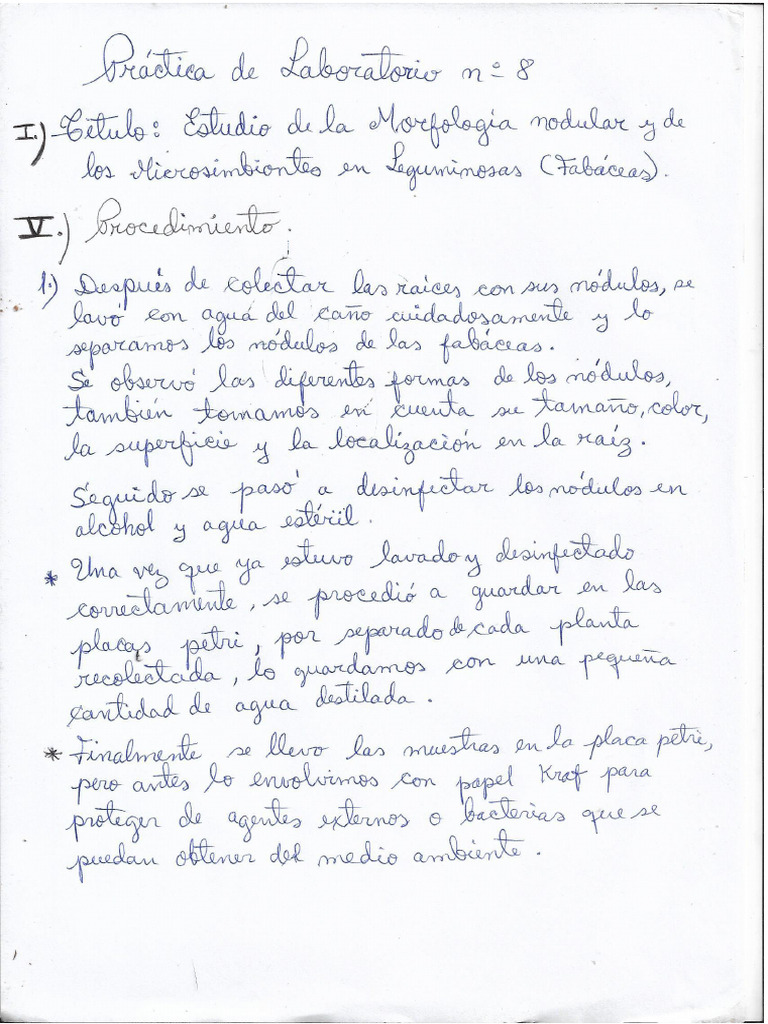 Práctica de Laboratorio nº 8
I.) Título: Estudio de la Morfología nodular y de
los Microsimbiontes en Leguminosas (Fabáceas).
V.) Procedimiento.
1.) Después de colectar las raices con sus nódulos, se
lavó con agua del caño cuidadosamente y lo
separamos los nódulos de las fabáceas.
Se observó las diferentes formas de los nódulos,
también tomamos en cuenta su tamaño, color,
la superficie y la localización en la raíz.
Seguido se pasó a desinfectar los nódulos en
alcohol y agua estéril.
* Una vez que ya estuvo lavado y desinfectado
correctamente, se procedió a guardar en las
placas petri, por separado de cada planta
recolectada, lo guardamos con una pequeña
cantidad de agua destilada.
* Finalmente se llevo las muestras en la placa petri,
pero antes lo envolvimos con papel Kraf para
proteger de agentes externos o bacterias que se
puedan obtener del medio ambiente.